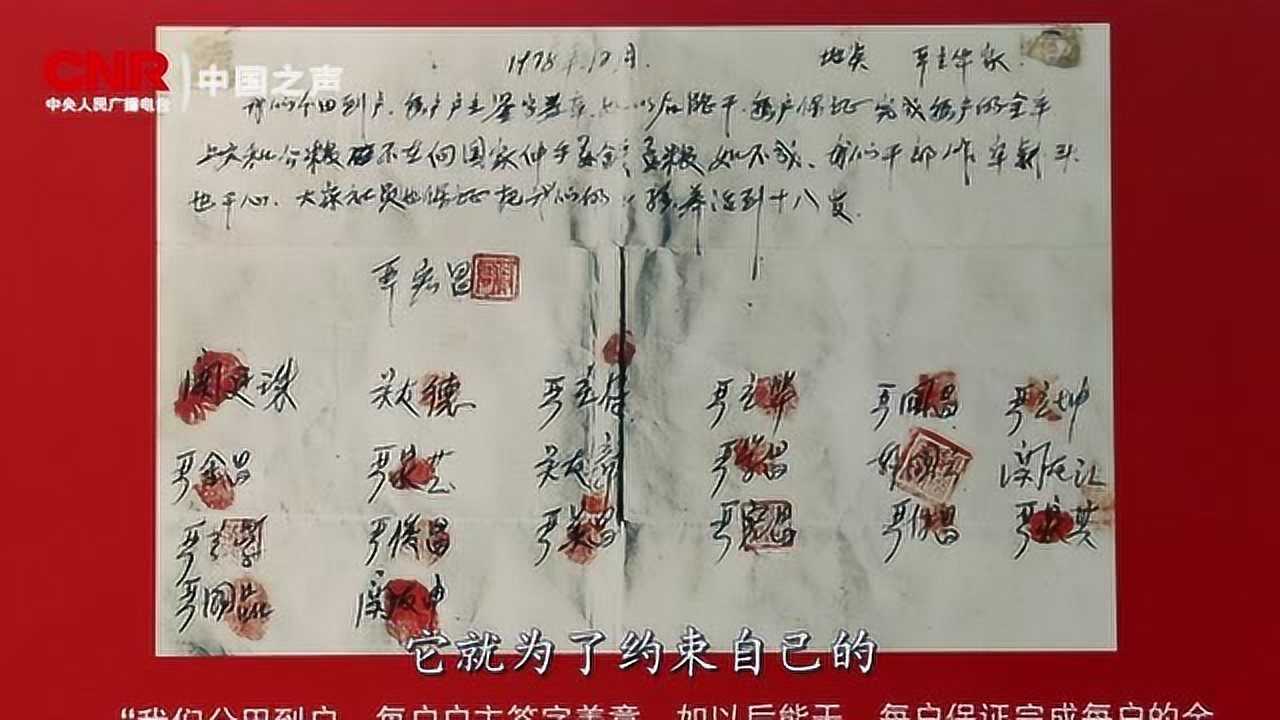 CNR 中国之声
中央人民广播电台
1978年12月. 地点 严立华家
我们分田到户，每户户主签字盖章，如以后能干，每户保证完成每户的全年
上交和公粮，不在向国家伸手要钱要粮，如不成，我们干部作牢杀头
也干心，大家社员也保证把我们的小孩养活到十八岁.
严宏昌
关廷珠 关友德 严立符 严立华 严国昌 严立坤
严金昌 严家芝 关友章 严学昌 韩国云 关友江
严立学 严俊昌 严美昌 严宏昌 严付昌 严家其
严国品 关友申
它就为了约束自己的
“我们分田到户，每户户主签字盖章，如以后能干，每户保证完成每户的全